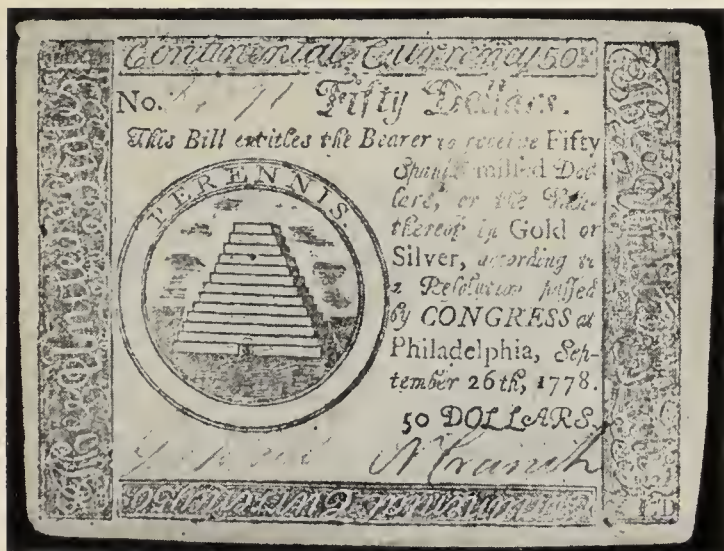 Continental Currency 50
No. Fifty Dollars.
This Bill entitles the Bearer to receive Fifty
Spanish milled Dol-
lars, or the Value
thereof in Gold or
Silver, according to
a Resolution passed
by CONGRESS at
Philadelphia, Sep-
tember 26th, 1778.
50 DOLLARS.
PERENNIS.
N Cranch
Continental Currency